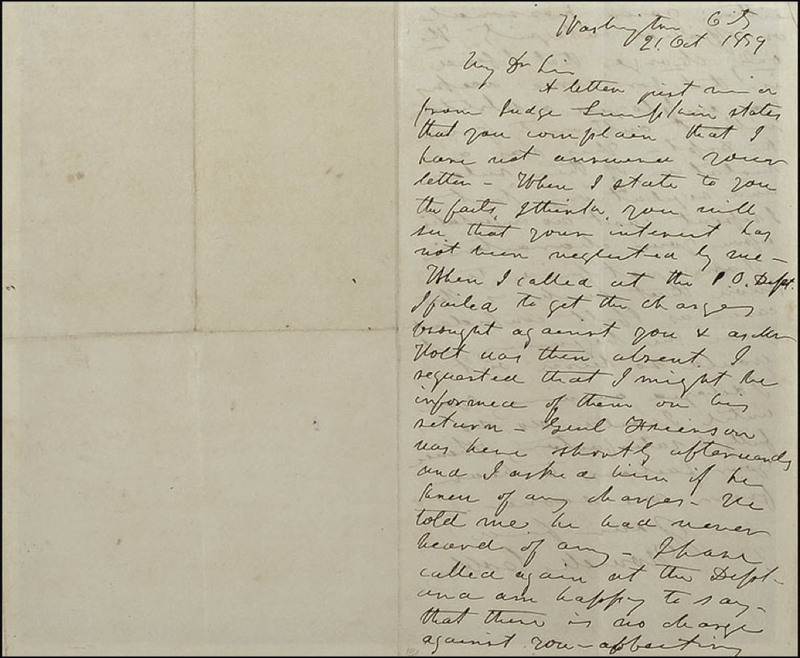 Washington City
21. Oct 1859
My Dr Sir
A letter just rec'd
from Judge Lumpkin states
that you complain that I
have not answered your
letter - When I state to you
the facts, I think, you will
see that your interest has
not been neglected by me -
When I called at the P.O. Dept.
I failed to get the charges
brought against you & as Mr
Holt was then absent I
requested that I might be
informed of them on his
return - Genl
was here shortly afterwards
and I asked him if he
knew of any charges - He
told me he had never
heard of any - I have
called again at the Dept -
and am happy to say -
that there is no charge
against you - affecting